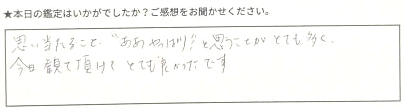 ★本日の鑑定はいかがでしたか？ご感想をお聞かせください。
思い当たること、“ああやっぱり！”と思うことがとても多く、
今日観て頂けて とても良かったです